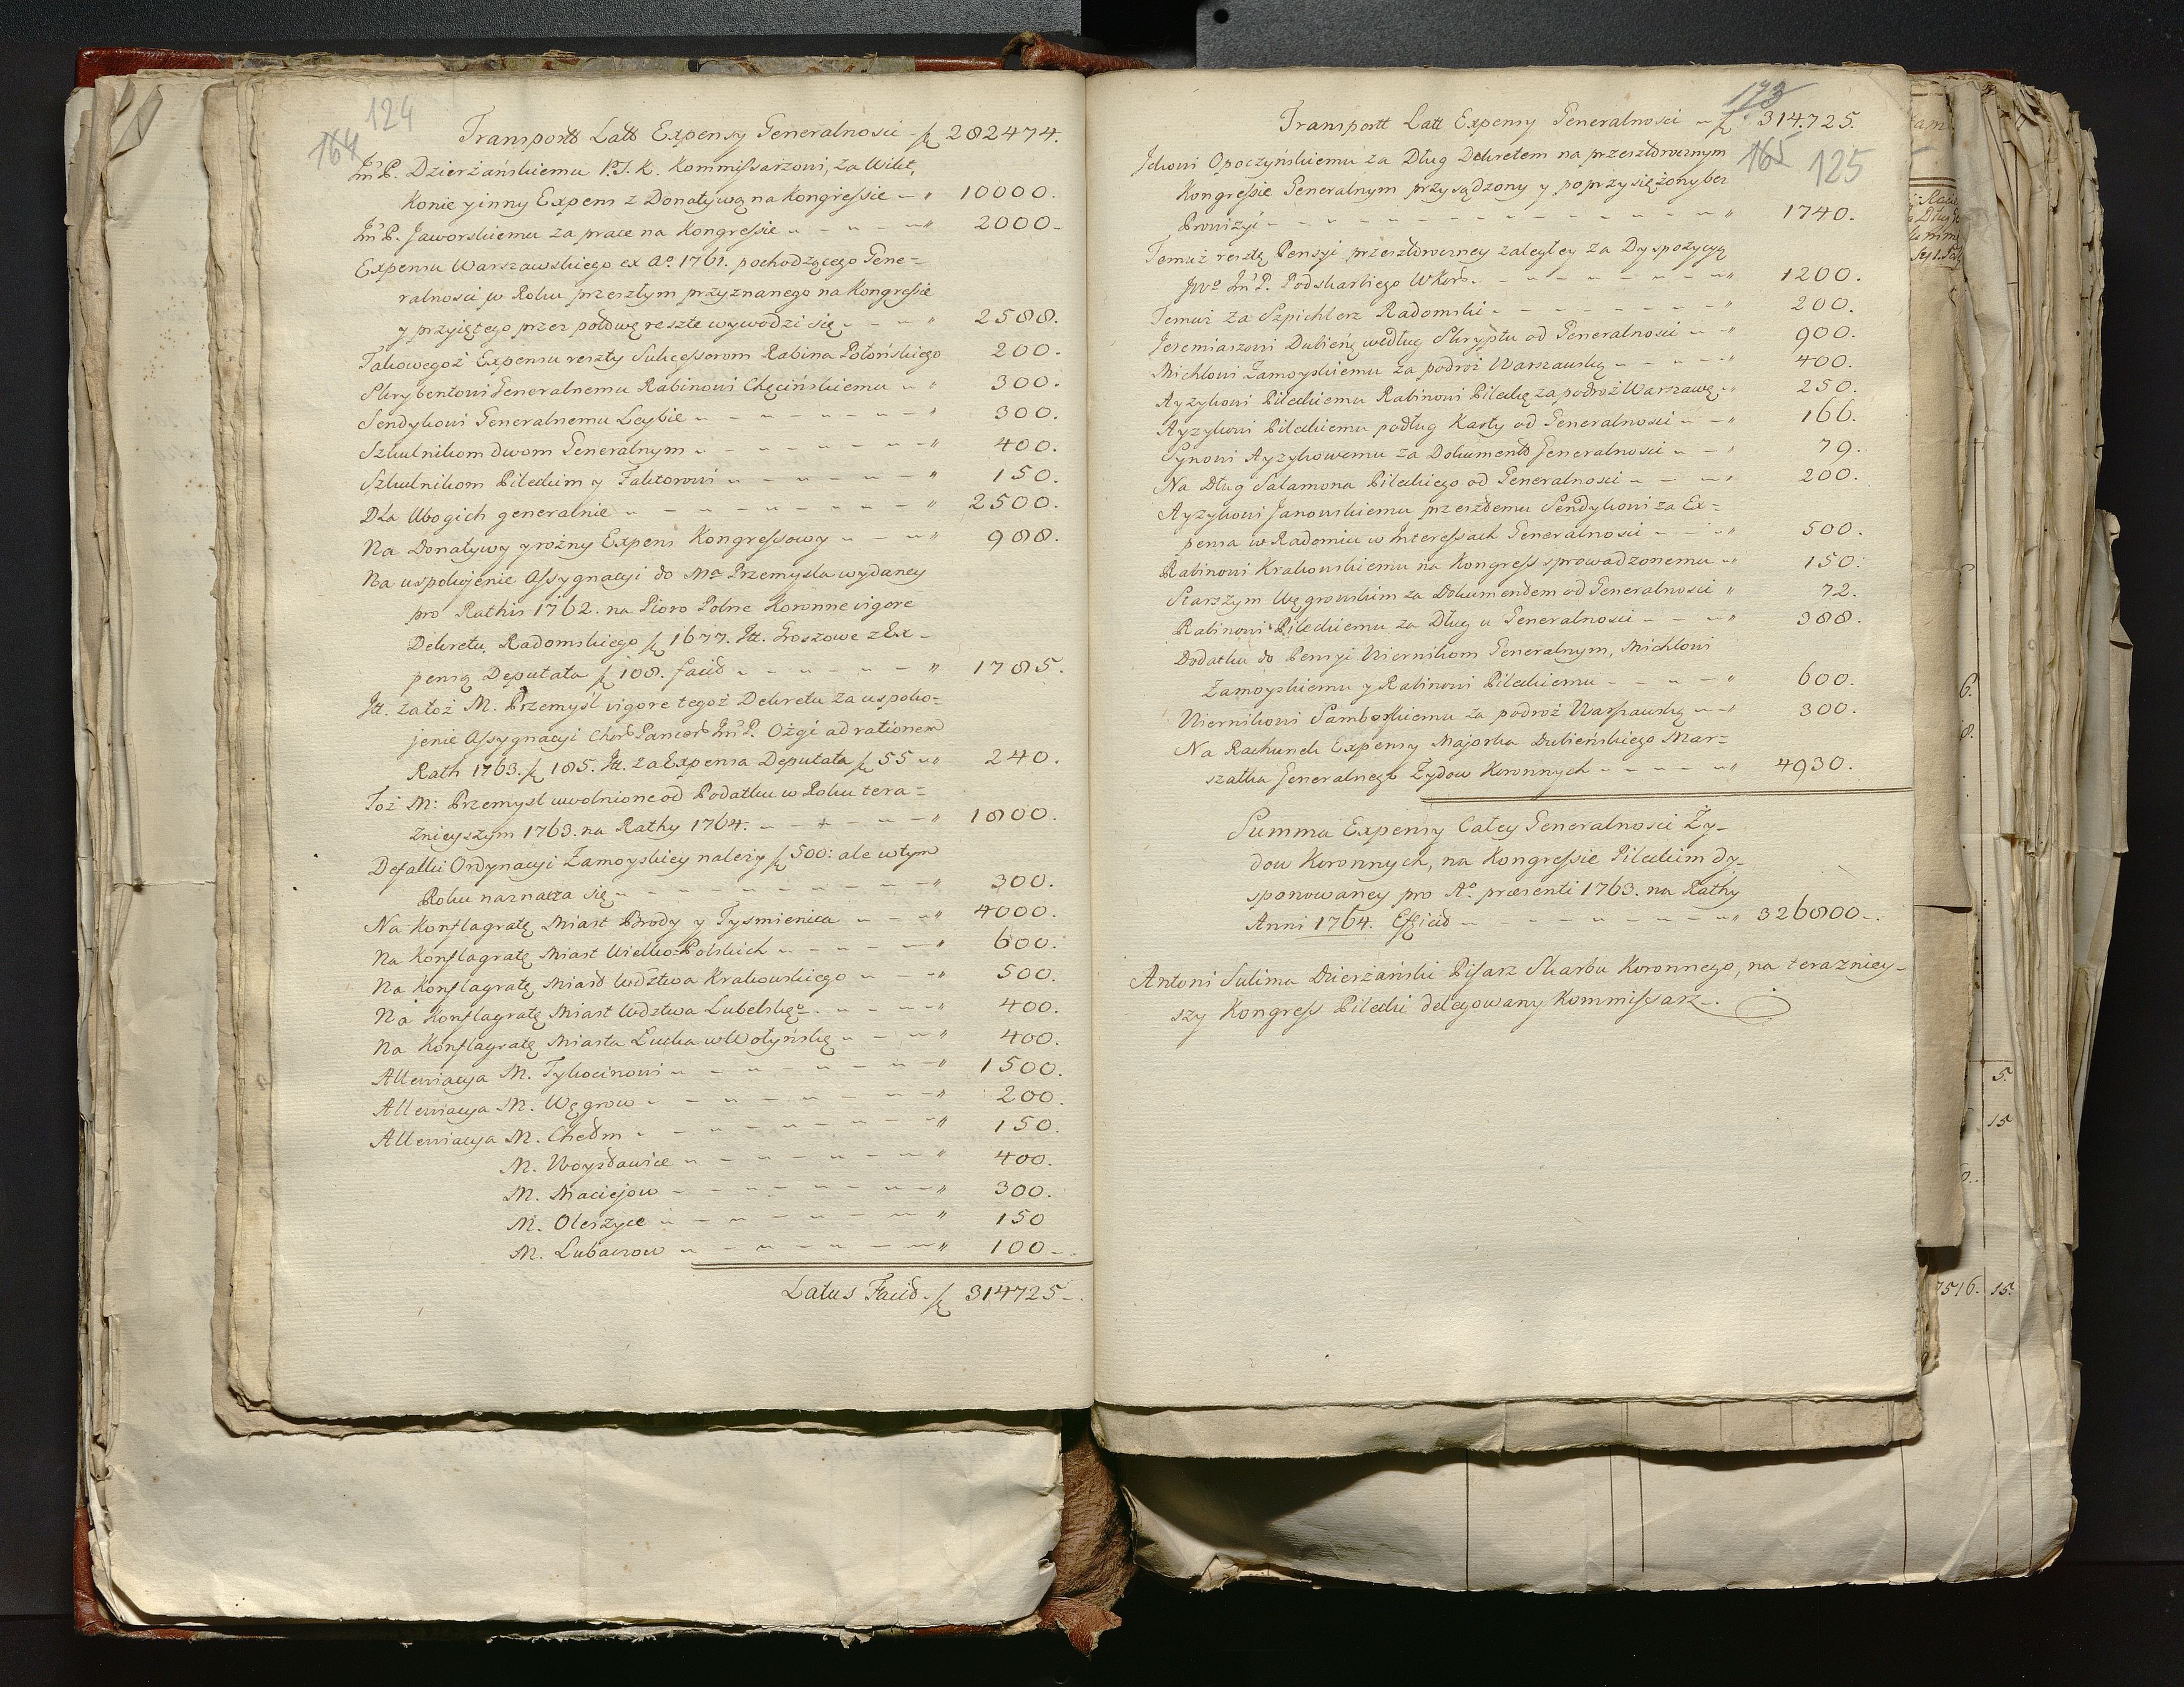 124
164
Transportt Latt Expensy Generalnosci - 282474.
Jm P. Dzierżańskiemu P. S. K. Kommissarzowi, za Wikt,
Konie y inny Expens z Donatywą na Kongressie - " 10000.
Jm P. Jaworskiemu za prace na Kongressie - " 2000-
Expensu Warszawskiego ex Ao 1761. pochodzącego Gene=
ralnosci w Roku przeszłym przyznanego na Kongressie
y przyiętego przez połowę reszte wywodzi się - " 2588.
Takowegoż Expensu reszty Sukcessorom Rabina Połońskiego 200.
Skrybentowi Generalnemu Rabinowi Chęcińskiemu - " 300.
Sendykowi Generalnemu Leybie - " 300.
Szkulnikom dwom Generalnym - " 400.
Szkulnikom Pileckim y Faktorowi - " 150.
Dla Ubogich generalnie - " 2500.
Na Donatywy y rożny Expens Kongressowy - " 988.
Na uspokojenie Assygnacyi do Ma Przemysla wydaney
pro Rathis 1762. na Pioro Polne Koronne vigore
Dekretu Radomskiego 1677. It. Groszowe z Ex-
pensą Deputata 108. facit - " 1785.
It. za toż M. Przemyśl vigore tegoż Dekretu za uspoko=
jenie Assygnacyi Chor. Pancer. Jm P. Ożgi ad rationem
Rath 1763. 185. It. za Expensa Deputata 55 - " 240.
Toż M: Przemysl uwolnione od Podatku w Roku tera=
znieyszym 1763. na Rathy 1764. - " 1800.
Defalki Ordynacyi Zamoyskiey należy 500: ale w tym
Roku naznacza się - " 300.
Na Konflagratę Miast Brody y Tysmienica - " 4000.
Na Konflagratę Miast Wielko=Polskich - " 600.
Na Konflagratę Miast Wdztwa Krakowskiego - " 500.
Na Konflagratę Miast Wdztwa Lubelskgo - " 400.
Na Konflagratę Miasta Łucka w Wołyńskę - " 400.
Allewiacya M. Tykocinowi - " 1500.
Allewiacya M. Węgrow - " 200.
Allewiacya M. Chełm - " 150.
M. Woysławice - " 400.
M. Maciejow - " 300.
M. Oleszyce - " 150
M. Lubaczow - " 100-
Latus Facit. 314725-.
173
165
125
Transportt Latt Expensy Generalnosci - 314.725.
Ickowi Opoczyńskiemu za Dług Dekretem na przeszłorocznym
Kongressie Generalnym przysądzony y poprzysiężony bez
Prowizyi - " 1740.
Temuż resztę Pensyi przeszłoroczney zaległey za Dyspozycyą
JWo Jm P. Podskarbiego W Kor. - " 1200.
Temuż za Szpichlerz Radomski - " 200.
Jeremiaszowi Dubieńę według Skryptu od Generalnosci - " 900.
Michlowi Zamoyskiemu za podroż Warszawską - " 400.
Ayzykowi Pileckiemu Rabinowi Pileckię za podroż Warszawę - " 250.
Ayzykowi Pileckiemu podług Karty od Generalnosci - " 166.
Synowi Ayzykowemu za Dokumentt Generalnosci - " 79.
Na Dług Salamona Pileckiego od Generalnosci - " 200.
Ayzykowi Janowskiemu przeszłemu Sendykowi za Ex=
pensa w Radomiu w Interessach Generalnosci - " 500.
Rabinowi Krakowskiemu na Kongress sprowadzonemu - " 150.
Starszym Węgrowskim za Dokumentem od Generalnosci " 72.
Rabinowi Pileckiemu za Dług u Generalnosci - " 388.
Dodatku do Pensyi Wiernikom Generalnym, Michlowi
Zamoyskiemu y Rabinowi Pileckiemu - " 600.
Wiernikowi Samborskiemu za podroż Warszawską - " 300.
Na Rachunek Expensy Majorka Dubieńskiego Mar=
szałka Generalnego Żydow Koronnych - " 4930.
Summa Expensy Całey Generalnosci Ży-
dow Koronnych, na Kongressie Pileckim dy-
sponowaney pro Ao præsenti 1763. na Rathy
Anni 1764. Efficit - " 326800-.
Antoni Sulima Dzierżański Pisarz Skarbu Koronnego, na terazniey-
szy Kongress Pilecki delegowany Kommissarz-.
6.
8.
5.
15
7516. 15.